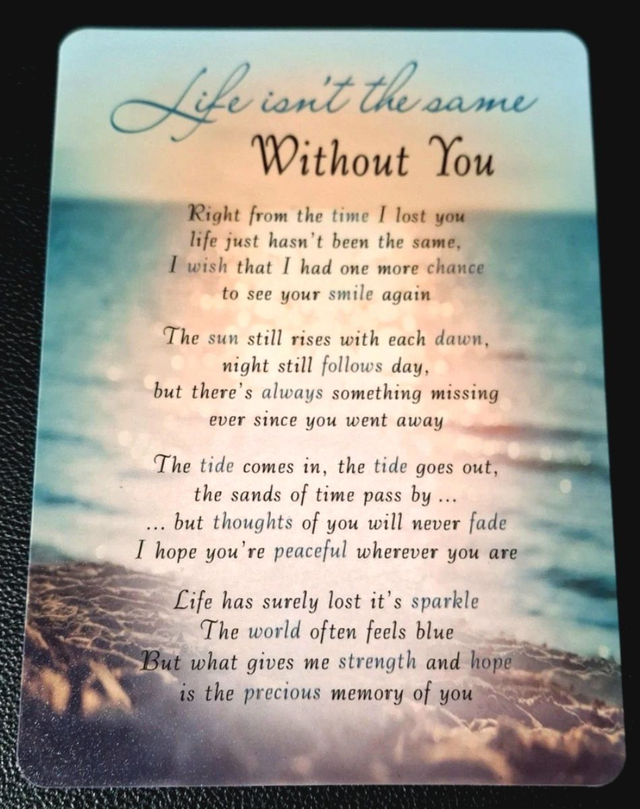 Life isn't the same
Without You
Right from the time I lost you
life just hasn't been the same,
I wish that I had one more chance
to see your smile again
The sun still rises with each dawn,
night still follows day,
but there's always something missing
ever since you went away
The tide comes in, the tide goes out,
the sands of time pass by ...
... but thoughts of you will never fade
I hope you're peaceful wherever you are
Life has surely lost it's sparkle
The world often feels blue
But what gives me strength and hope
is the precious memory of you